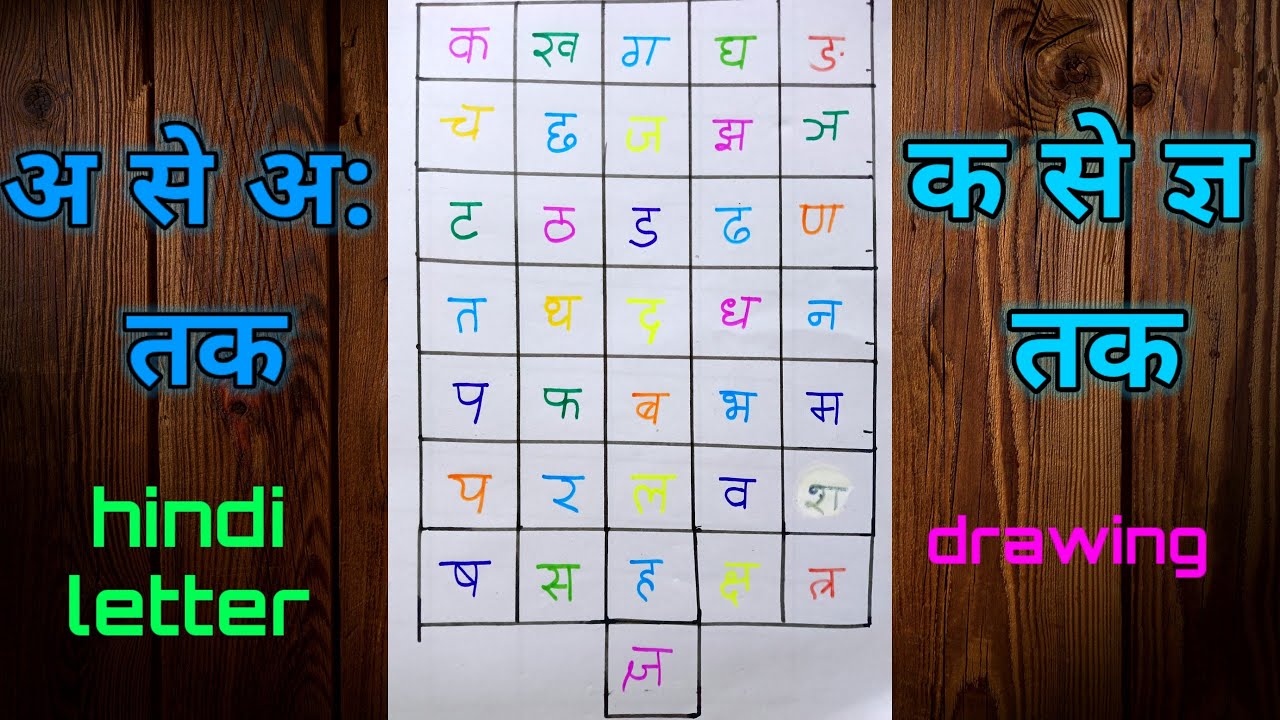 अ से अः
तक
hindi
letter
क ख ग घ ङ
च छ ज झ ञ
ट ठ ड ढ ण
त थ द ध न
प फ ब भ म
प र ल व श
ष स ह क्ष त्र
ज्ञ
क से ज्ञ
तक
drawing